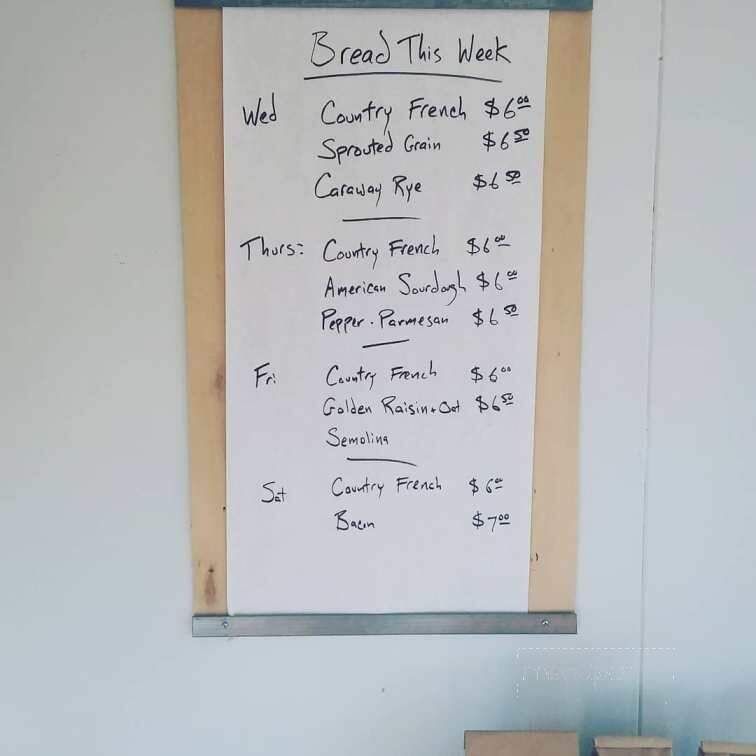 Bread This Week
Wed Country French $6.00
Sprouted Grain $6.50
Caraway Rye $6.50
Thurs: Country French $6.00
American Sourdough $6.00
Pepper · Parmesan $6.50
Fri Country French $6.00
Golden Raisin + Oat $6.50
Semolina
Sat Country French $6.00
Bacon $7.00